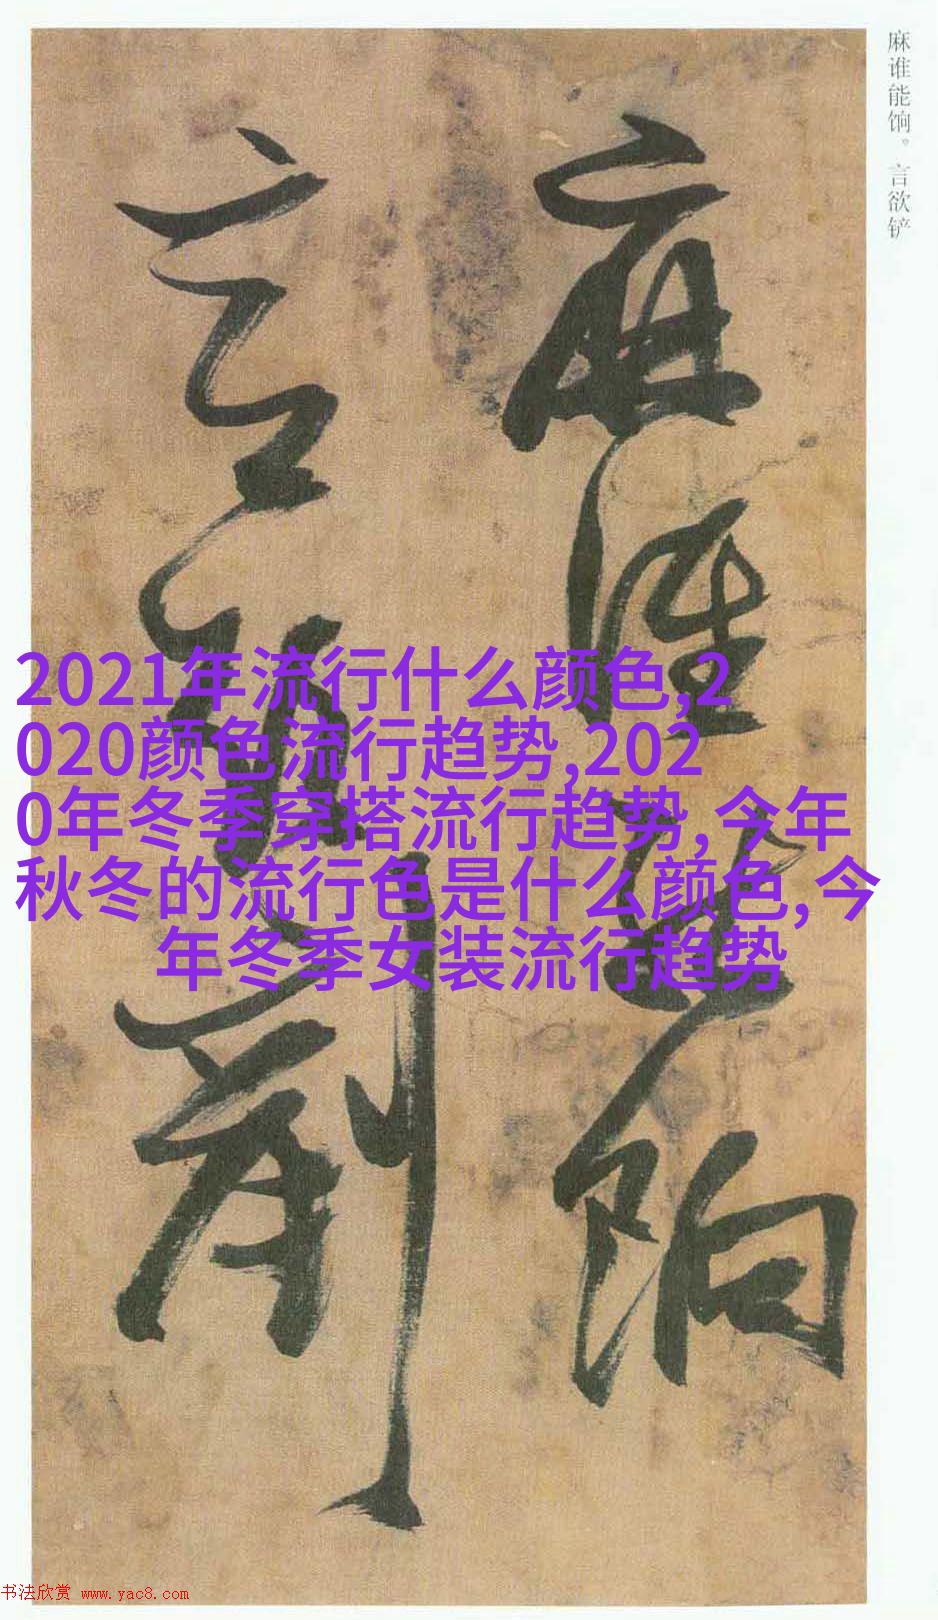 麻谁能饷。言欲铲
麻谁能饷
言欲铲
2021年流行什么颜色,2
020颜色流行趋势,202
0年冬季穿搭流行趋势,今年
秋冬的流行色是什么颜色,今
年冬季女装流行趋势
书法欣赏 www.yac8.com